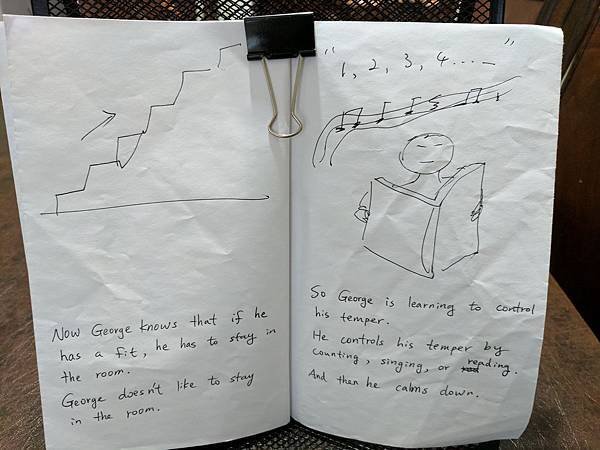 Now George knows that if he
has a fit, he has to stay in
the room.
George doesn't like to stay
in the room.
" 1, 2, 3, 4..... "
So George is learning to control
his temper.
He controls his temper by
counting, singing, or reading.
And then he calms down.